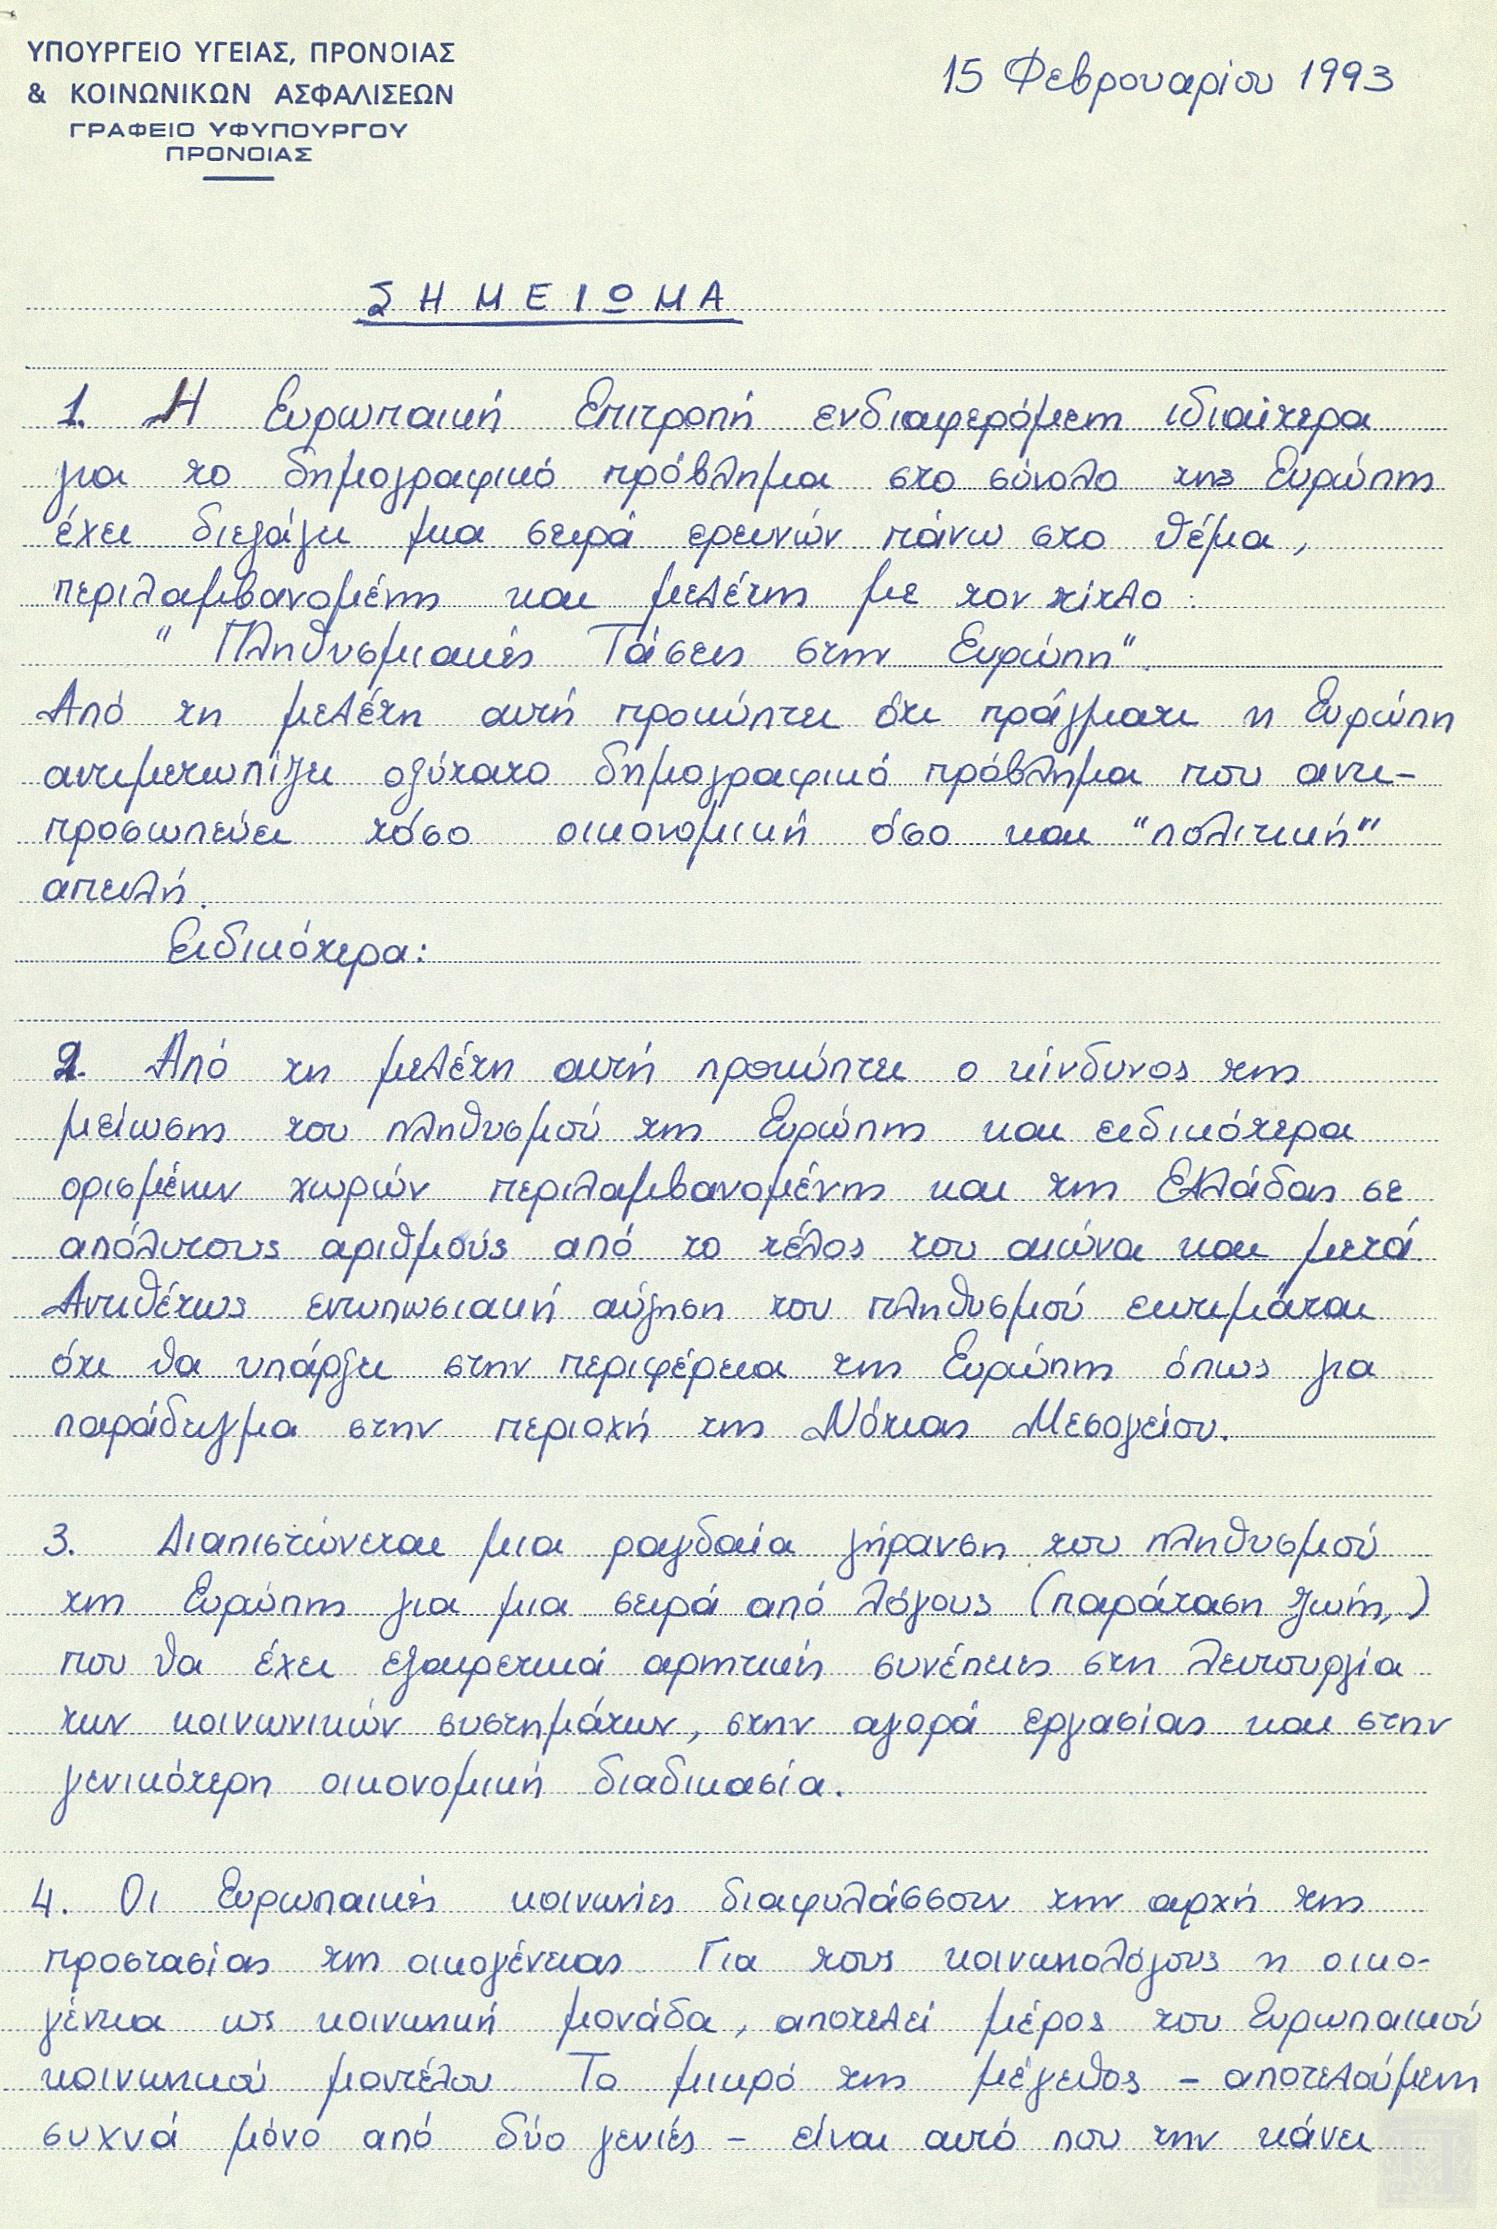 ΥΠΟΥΡΓΕΙΟ ΥΓΕΙΑΣ, ΠΡΟΝΟΙΑΣ
& ΚΟΙΝΩΝΙΚΩΝ ΑΣΦΑΛΙΣΕΩΝ
ΓΡΑΦΕΙΟ ΥΦΥΠΟΥΡΓΟΥ
ΠΡΟΝΟΙΑΣ
15 Φεβρουαρίου 1993
ΣΗΜΕΙΩΜΑ
1. Η Ευρωπαική Επιτροπή ενδιαφερόμενη ιδιαίτερα
για το δημογραφικό πρόβλημα στο σύνολο της Ευρώπης
έχει διεξάγει μια σειρά ερευνών πάνω στο θέμα,
περιλαμβανομένης και μελέτης με τον τίτλο :
" Πληθυσμιακές Τάσεις στην Ευρώπη".
Από τη μελέτη αυτή προκύπτει ότι πράγματι η Ευρώπη
αντιμετωπίζει οξύτατο δημογραφικό πρόβλημα που αντι-
προσωπεύει τόσο οικονομική όσο και "πολιτική"
απειλή.
Ειδικότερα:
2. Από τη μελέτη αυτή προκύπτει ο κίνδυνος της
μείωσης του πληθυσμού της Ευρώπης και ειδικότερα
ορισμένων χωρών περιλαμβανομένης και της Ελλάδας σε
απόλυτους αριθμούς από το τέλος του αιώνα και μετά.
Αντιθέτως εντυπωσιακή αύξηση του πληθυσμού εκτιμάται
ότι θα υπάρξει στην περιφέρεια της Ευρώπης όπως για
παράδειγμα στην περιοχή της Νότιας Μεσογείου.
3. Διαπιστώνεται μια ραγδαία γήρανση του πληθυσμού
της Ευρώπης για μια σειρά από λόγους (παράταση ζωής,)
που θα έχει εξαιρετικά αρνητικές συνέπειες στη λειτουργία
των κοινωνικών συστημάτων, στην αγορά εργασίας και στην
γενικότερη οικονομική διαδικασία.
4. Οι Ευρωπαικές κοινωνίες διαφυλάσσουν την αρχή της
προστασίας της οικογένειας. Για τους κοινωνιολόγους η οικο-
γένεια ως κοινωνική μονάδα, αποτελεί μέρος του Ευρωπαικού
κοινωνικού μοντέλου. Το μικρό της μέγεθος - αποτελούμενη
συχνά μόνο από δύο γενιές - είναι αυτό που την κάνει